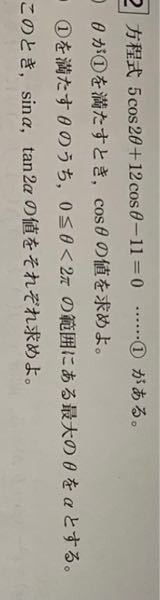 2 方程式 5cos2θ+12cosθ−11=0 ……① がある。
) θが①を満たすとき，cosθの値を求めよ。
) ①を満たすθのうち，0≦θ<2π の範囲にある最大のθをαとする。
このとき，sinα，tan2αの値をそれぞれ求めよ。